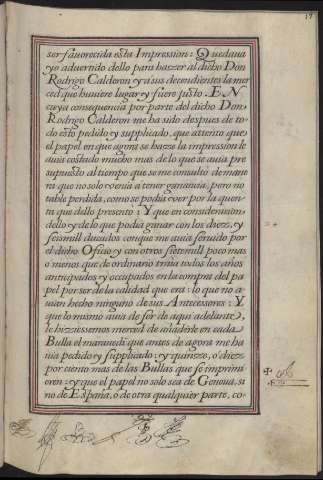 ser favorecida esta Impression: Quedaua
yo aduertido dello para hazzer al dicho Don
Rodrigo Calderon y a sus decendientes la mer
ced que huuiere lugar y fuere justo. EN
cuya consequencia por parte del dicho Don
Rodrigo Calderon me ha sido despues de to
do esto pedido y supplicado, que attento que
el papel en que agora se haeze la impression le
auia costado mucho mas de lo que se auia pre
supuesto al tiempo que se me consulto de mane
ra que no solo venia a tener ganancia, pero no
table perdida, como se podia ver por la quen
ta que dello presento: Y que en consideracion
dello y de lo que podia ganar con los diezz, y
seis mill ducados con que me auia seruido por
el dicho Officio y con otros siete mill poco mas
o menos que de ordinario traia todos los años
anticipados y occupados en la compra del pa
pel por ser de la calidad que era: lo que no a
uian hecho ninguno de sus Antecessores: Y
que lo mismo auia de ser de aqui adelante,
le hizziessemos merced de añadirle en cada
Bulla el marauedi que antes de agora me ha
uia pedido y supplicado: y quinze, o diezz
por ciento mas de las Bullas que se imprimi
eren: y que el papel no solo sea de Genoua, si
no de España, o de otra qualquier parte, co-